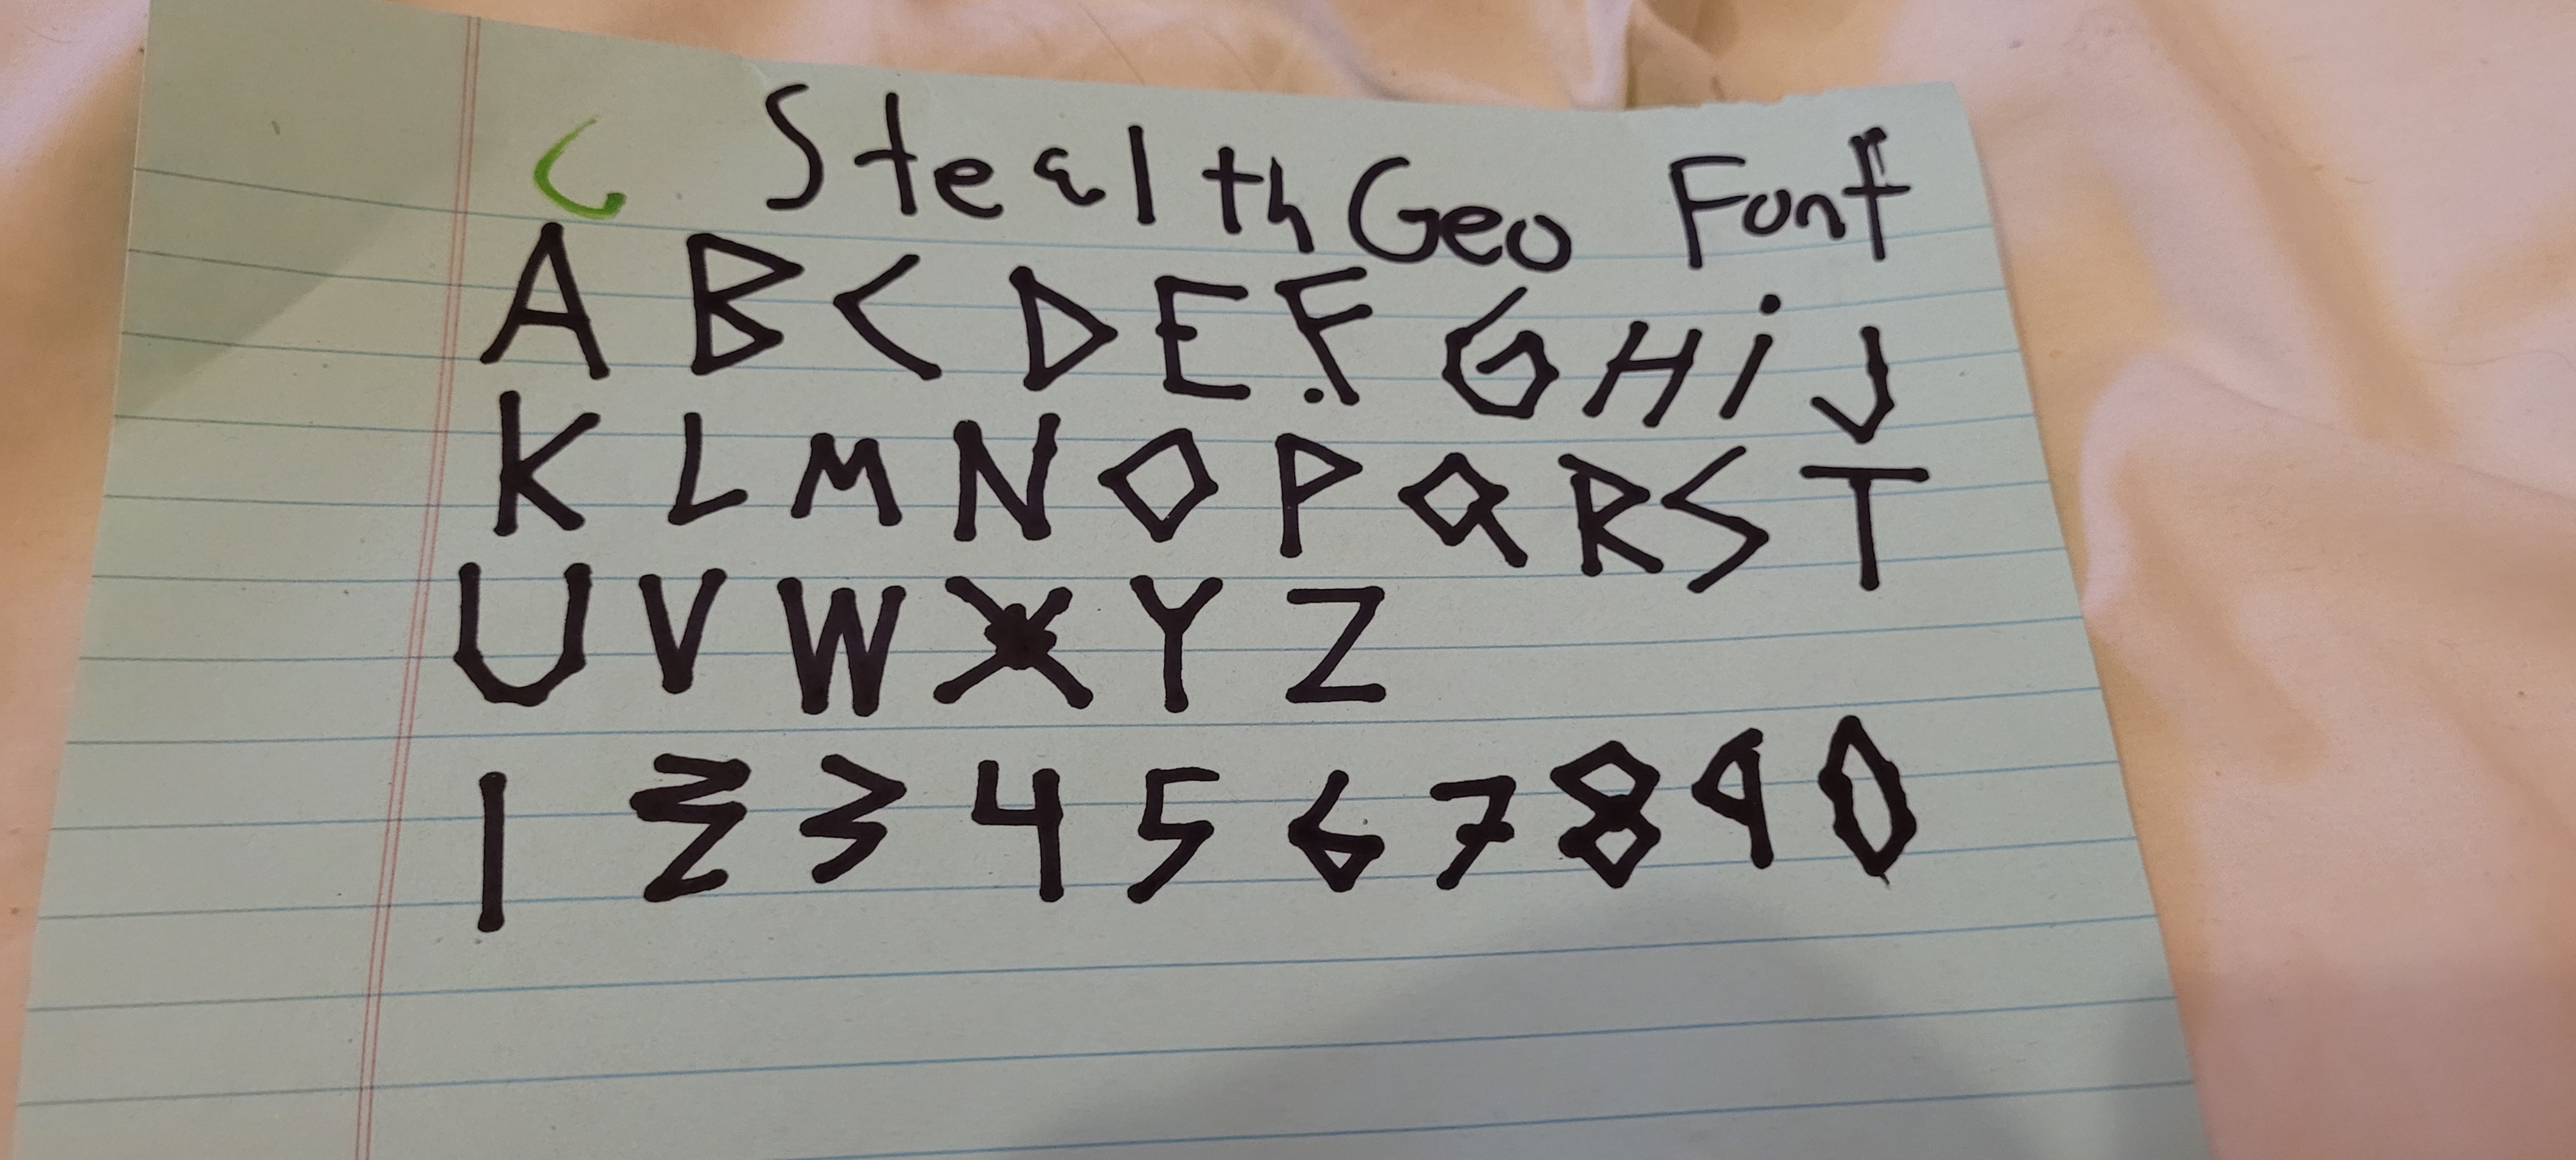 Stealth Geo Font
A B C D E F. G H i J
K L M N O P Q R S T
U V W X Y Z
1 2 3 4 5 6 7 8 9 0